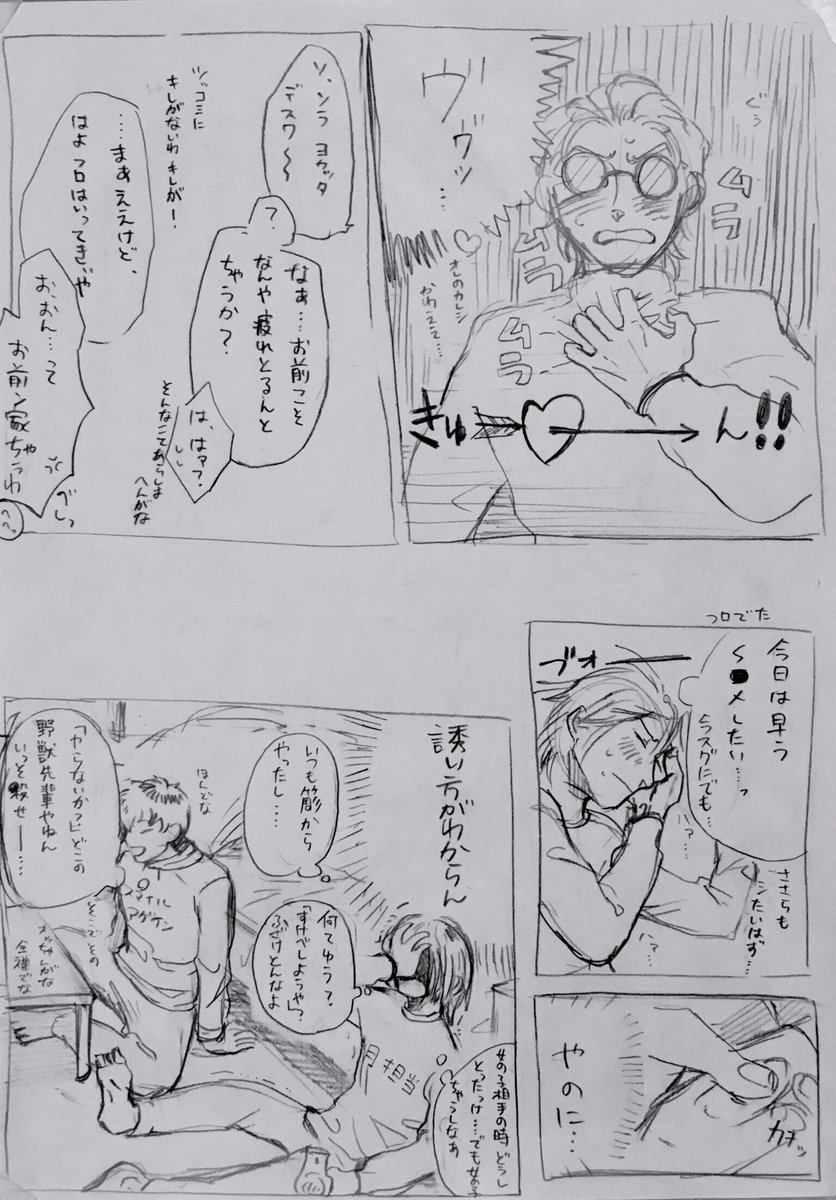 ぐぅ
ヴヴッ…
ムラ
ムラ
ムラ
おれのカレシ
かわええ…
きゅーん!!
ソ、ソラ ヨカッタ
デスワ〜
ツッコミに
キレがないわ キレがー!
?
なぁ…お前こそ
なんや疲れとるんと
ちゃうか?
は、は??
そんなことあらしま
へんがな
……まぁええけど、
はよフロはいってきぃや
お、おん…って
お前ン家ちゃうわ
べしっ
へへっ
フロでた
ブオーーー
今日は早う
S●Xしたい…っ
今スグにでも…
ハァ…
ささらも
シたいはず…
ハァ…
やのに…
カチッ
誘い方がわからん
いつも簓から
やったし…
何てゆう?
「すけべしようや」?
ふざけとんなよ
女の子相手の時どうし
とったっけ…でも女の子
ちゃうしなぁ
月担当
ほんでな
スマイル
アゲケン
「やらないか?」どこの
野獣先輩やねん
いっそ殺せーー…
そこでその
オッちゃんがな
全裸でな